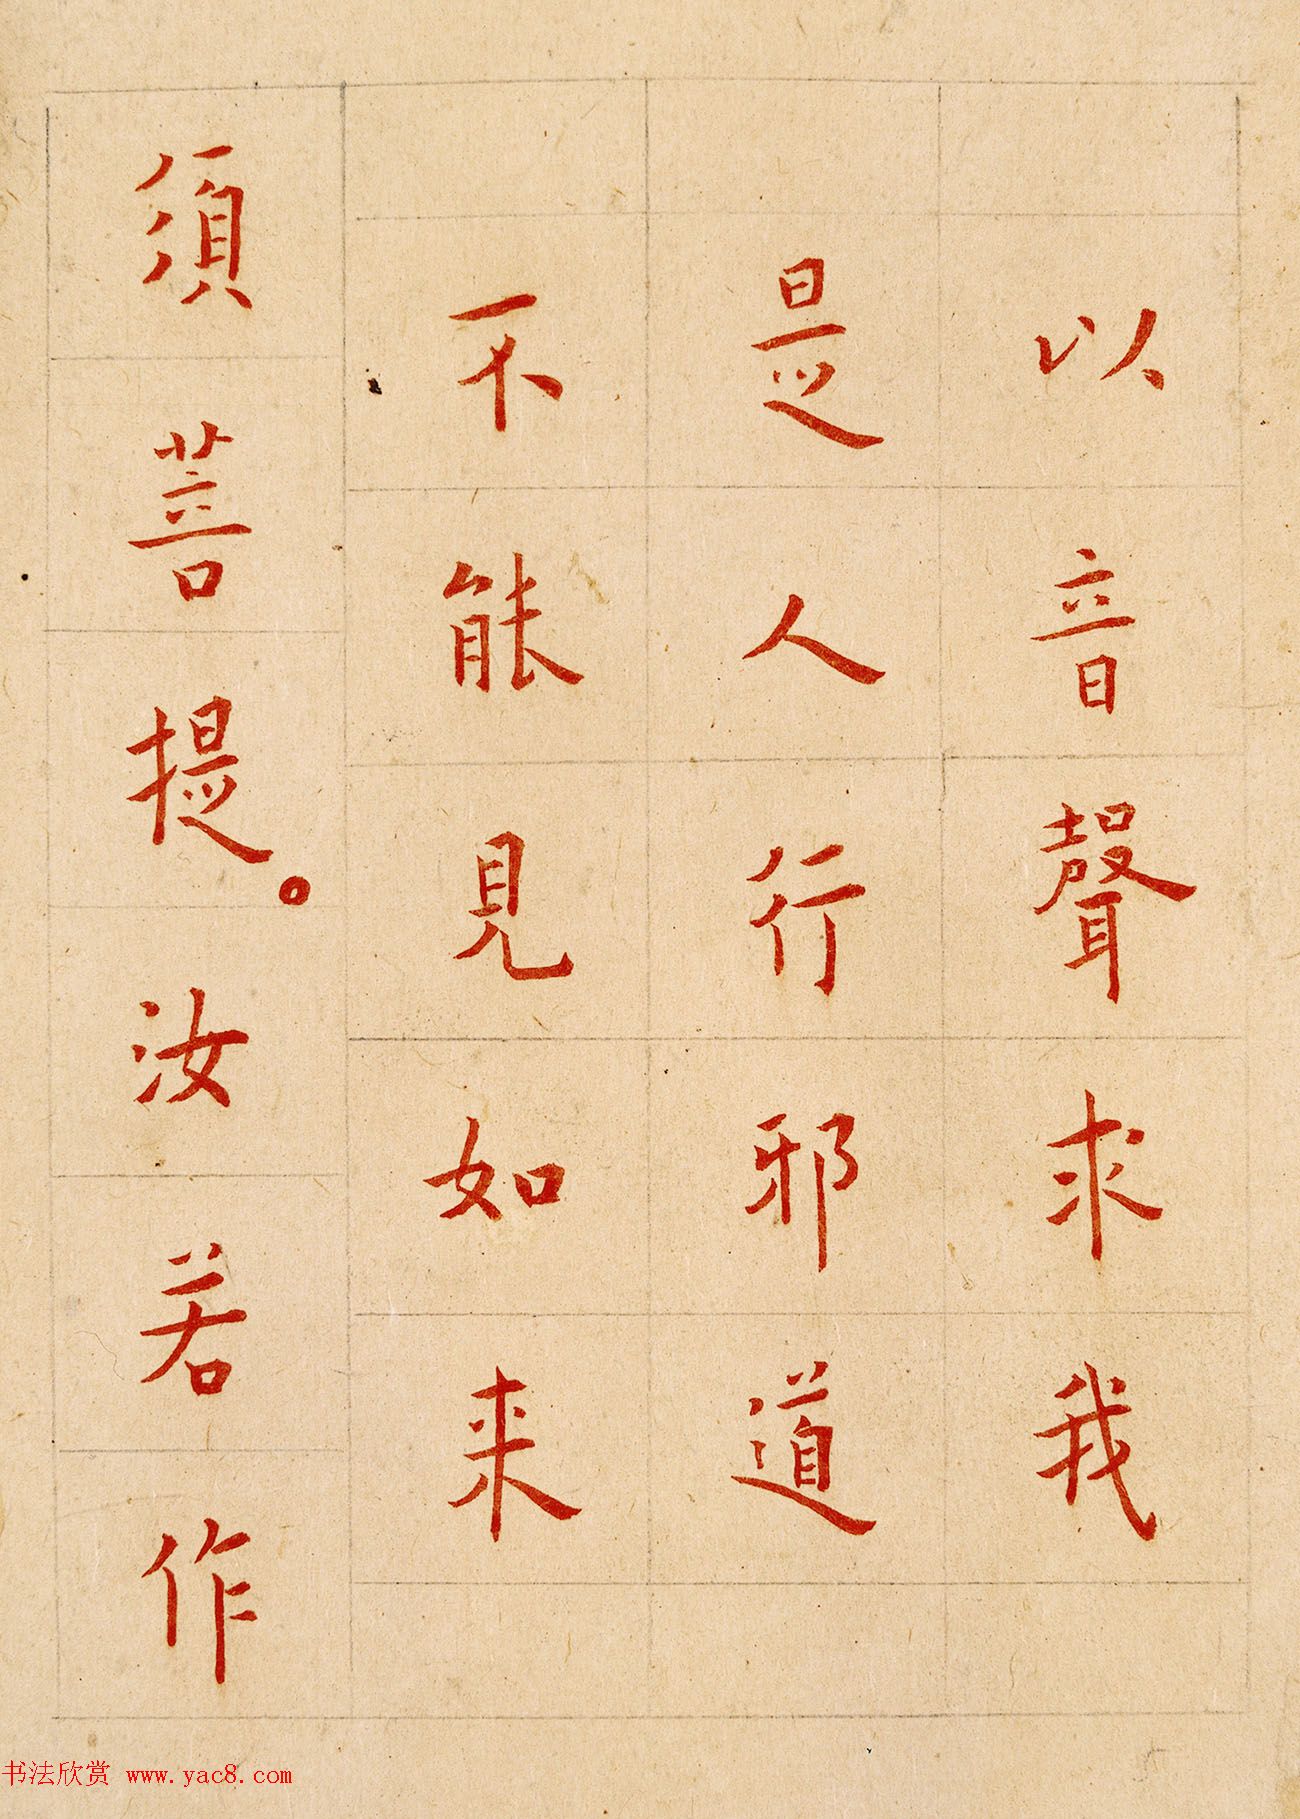 以音聲求我
是人行邪道
不能見如来
須菩提。汝若作
书法欣赏 www.yac8.com